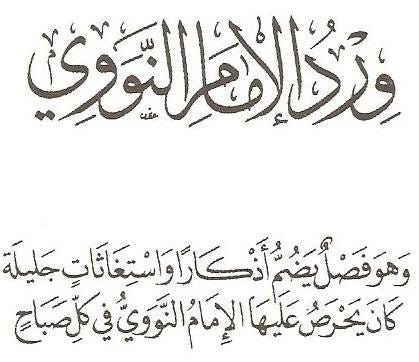 وِرْدُ الإِمَامِ النَّوَوِي
وَهُوَ فَصْلٌ يَضُمُّ أَذْكَارًا وَاسْتِغَاثَاتٍ جَلِيلَة
كَانَ يَحْرَصُ عَلَيْهَا الإِمَامُ النَّوَوِيُّ فِي كُلِّ صَبَاحٍ